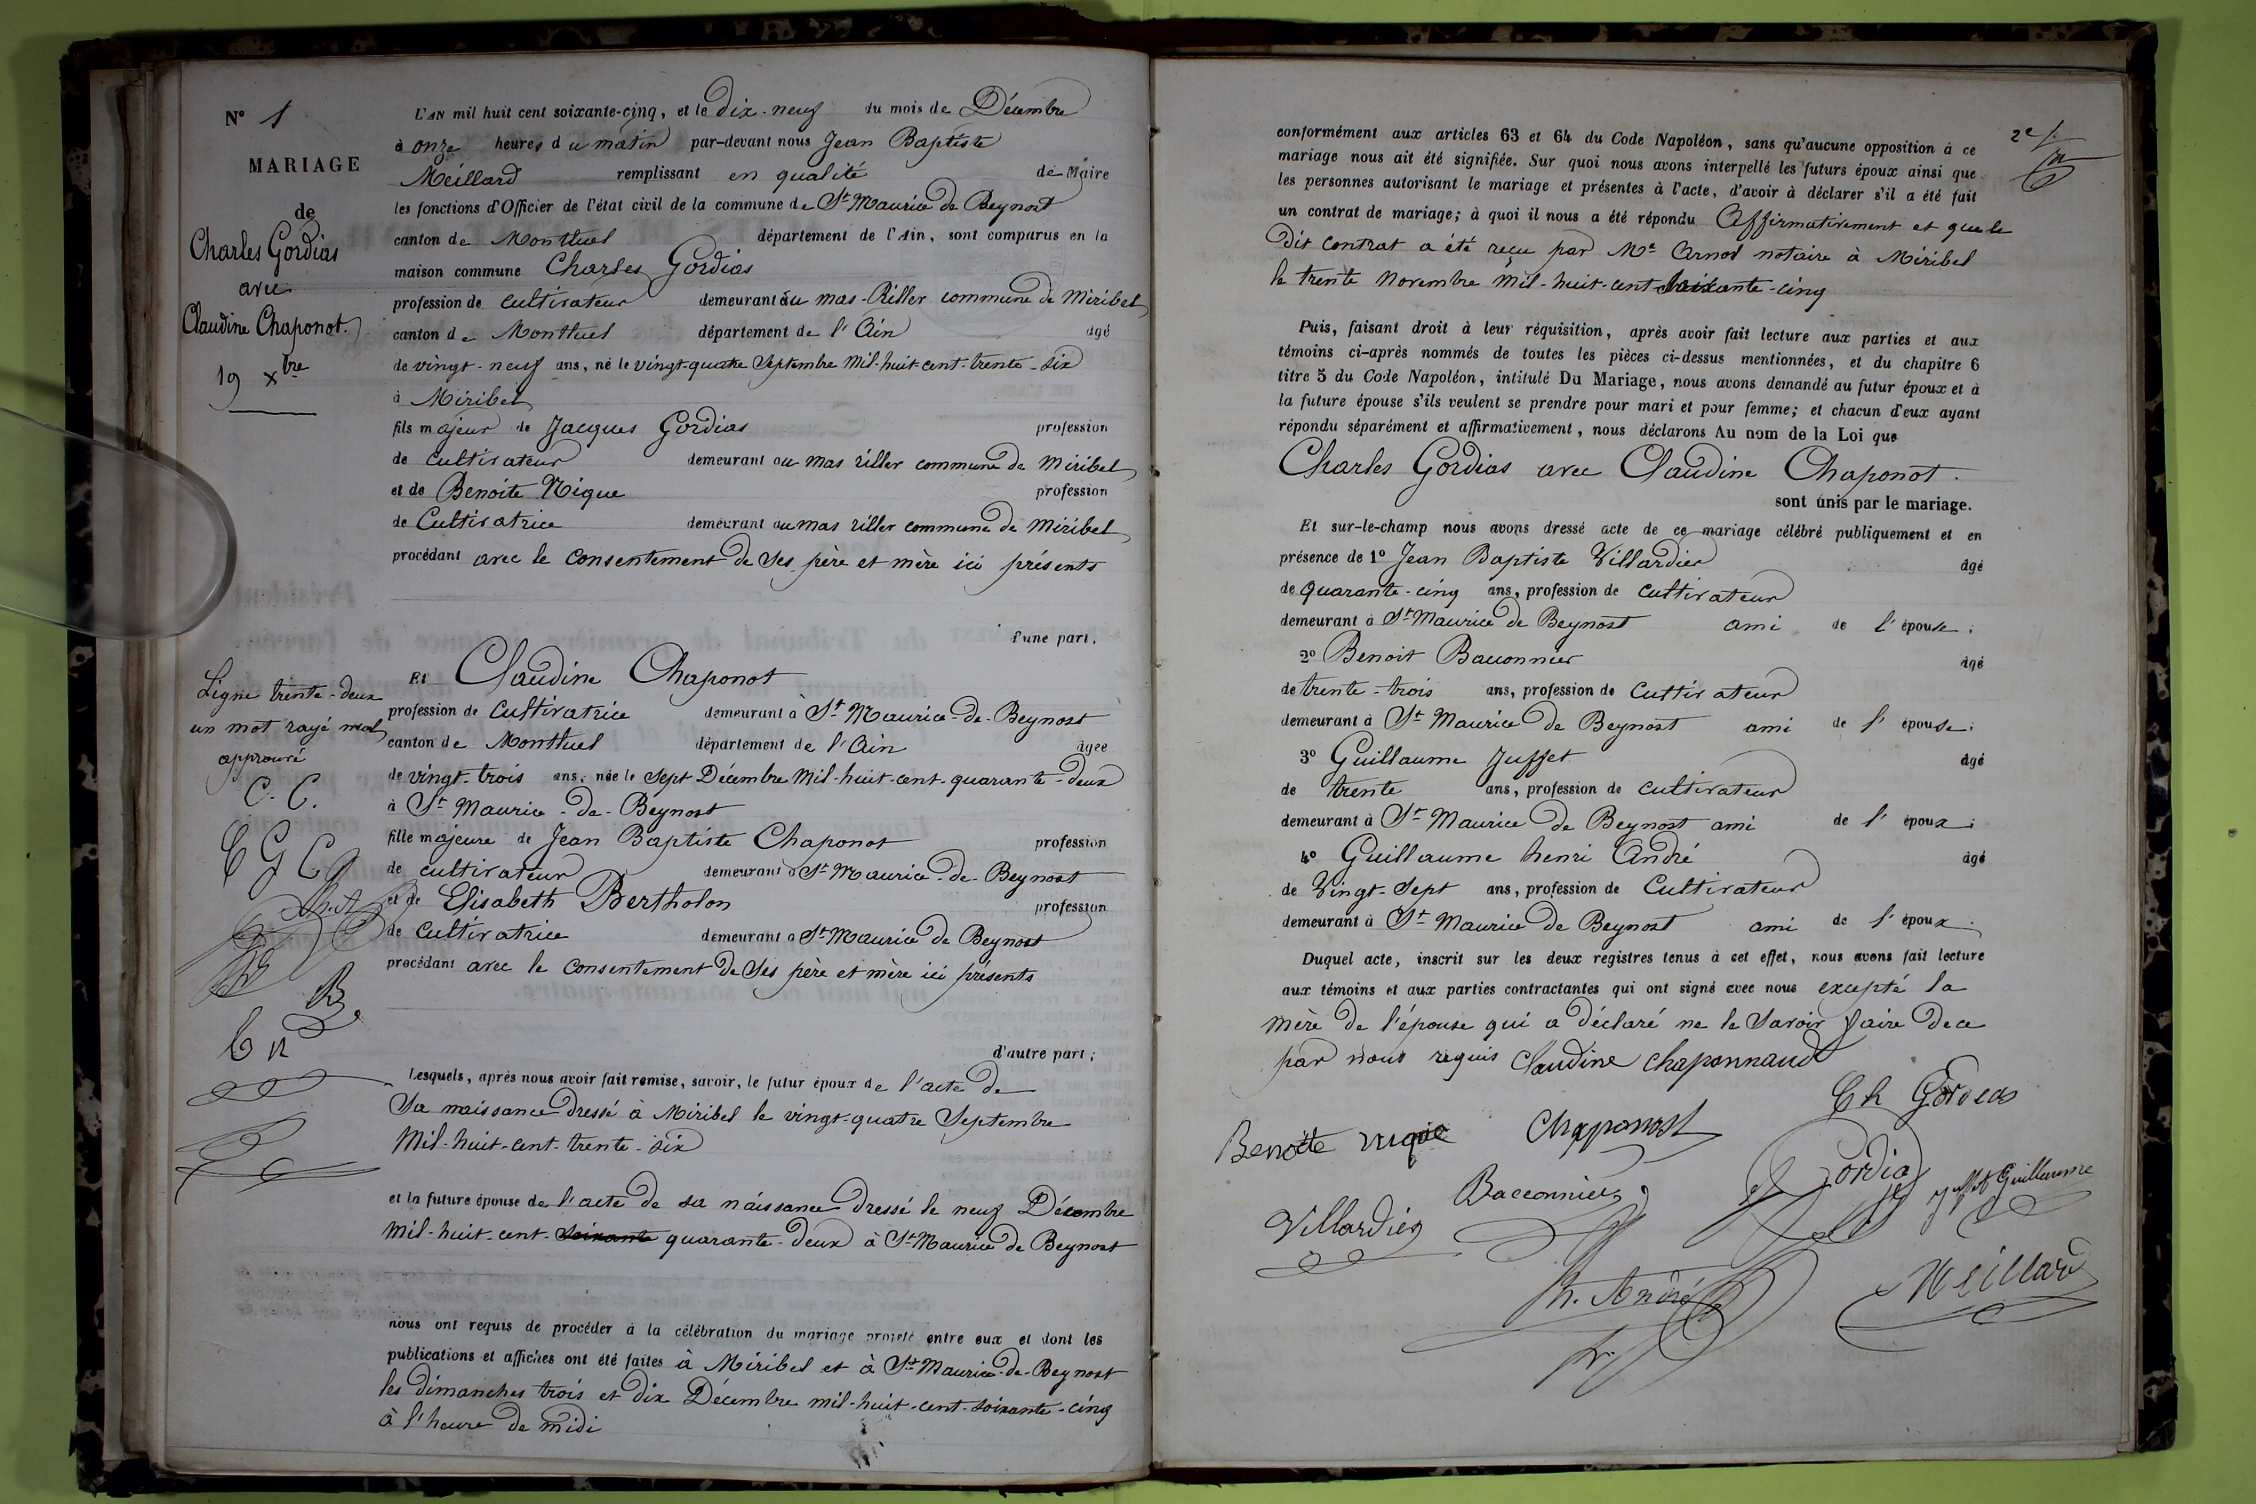 N° 1
MARIAGE
de
Charles Gordias
avec
Claudine Chaponot.
19 xbre
Ligne trente-deux
un mot rayé nul
approuvé
C. C.
C G C J
h. A
B
L'AN mil huit cent soixante-cinq, et le dix-neuf du mois de Décembre
à onze heures du matin par-devant nous Jean Baptiste
Meillard remplissant en qualité de Maire
les fonctions d'Officier de l'état civil de la commune de St Maurice de Beynost
canton de Montluel département de l'Ain, sont comparus en la
maison commune Charles Gordias
profession de cultivateur demeurant au mas-Riller commune de Miribel
canton de Montluel département de l'Ain âgé
de vingt-neuf ans, né le vingt-quatre Septembre mil-huit-cent-trente-six
à Miribel
fils majeur de Jacques Gordias profession
de cultivateur demeurant au mas riller commune de Miribel
et de Benoite Nique profession
de Cultivatrice demeurant au mas riller commune de Miribel
procédant avec le consentement de ses père et mère ici présents
d'une part.
Et Claudine Chaponot
profession de cultivatrice demeurant à St Maurice-de-Beynost
canton de Montluel département de l'Ain âgée
de vingt-trois ans, née le sept Décembre mil-huit-cent-quarante-deux
à St Maurice-de-Beynost
fille majeure de Jean Baptiste Chaponot profession
de cultivateur demeurant à St Maurice-de-Beynost
et de Elisabeth Bertholon profession
de cultivatrice demeurant à St Maurice de Beynost
procédant avec le consentement de ses père et mère ici présents
d'autre part;
Lesquels, après nous avoir fait remise, savoir, le futur époux de l'acte de
sa naissance dressé à Miribel le vingt-quatre Septembre
mil-huit-cent-trente-six
et la future épouse de l'acte de sa naissance dressé le neuf Décembre
mil-huit-cent-soixante quarante-deux à St Maurice de Beynost
nous ont requis de procéder à la célébration du mariage projeté entre eux et dont les
publications et affiches ont été faites à Miribel et à St Maurice-de-Beynost
les dimanches trois et dix Décembre mil-huit-cent-soixante-cinq
à l'heure de midi
2e
conformément aux articles 63 et 64 du Code Napoléon, sans qu'aucune opposition à ce
mariage nous ait été signifiée. Sur quoi nous avons interpellé les futurs époux ainsi que
les personnes autorisant le mariage et présentes à l'acte, d'avoir à déclarer s'il a été fait
un contrat de mariage; à quoi il nous a été répondu Affirmativement et que le
dit contrat a été reçu par Me Arnod notaire à Miribel
le trente Novembre mil-huit-cent-soixante-cinq
Puis, faisant droit à leur réquisition, après avoir fait lecture aux parties et aux
témoins ci-après nommés de toutes les pièces ci-dessus mentionnées, et du chapitre 6
titre 5 du Code Napoléon, intitulé Du Mariage, nous avons demandé au futur époux et à
la future épouse s'ils veulent se prendre pour mari et pour femme; et chacun d'eux ayant
répondu séparément et affirmativement, nous déclarons Au nom de la Loi que
Charles Gordias avec Claudine Chaponot.
sont unis par le mariage.
Et sur-le-champ nous avons dressé acte de ce mariage célébré publiquement et en
présence de 1° Jean Baptiste Villardier âgé
de quarante-cinq ans, profession de cultivateur
demeurant à St Maurice de Beynost ami de l'épouse;
2° Benoit Bacconnier âgé
de trente-trois ans, profession de cultivateur
demeurant à St Maurice de Beynost ami de l'épouse;
3° Guillaume Juffet âgé
de trente ans, profession de cultivateur
demeurant à St Maurice de Beynost ami de l'époux;
4° Guillaume henri André âgé
de Vingt-Sept ans, profession de Cultivateur
demeurant à St Maurice de Beynost ami de l'époux.
Duquel acte, inscrit sur les deux registres tenus à cet effet, nous avons fait lecture
aux témoins et aux parties contractantes qui ont signé avec nous excepté la
mère de l'épouse qui a déclaré ne le savoir faire de ce
par nous requis Claudine chaponnaud
Ch Gordias
Benoite nique Chapponost
Gordias Juffet Guillaume
Bacconnier
Villardier
h. André Meillard